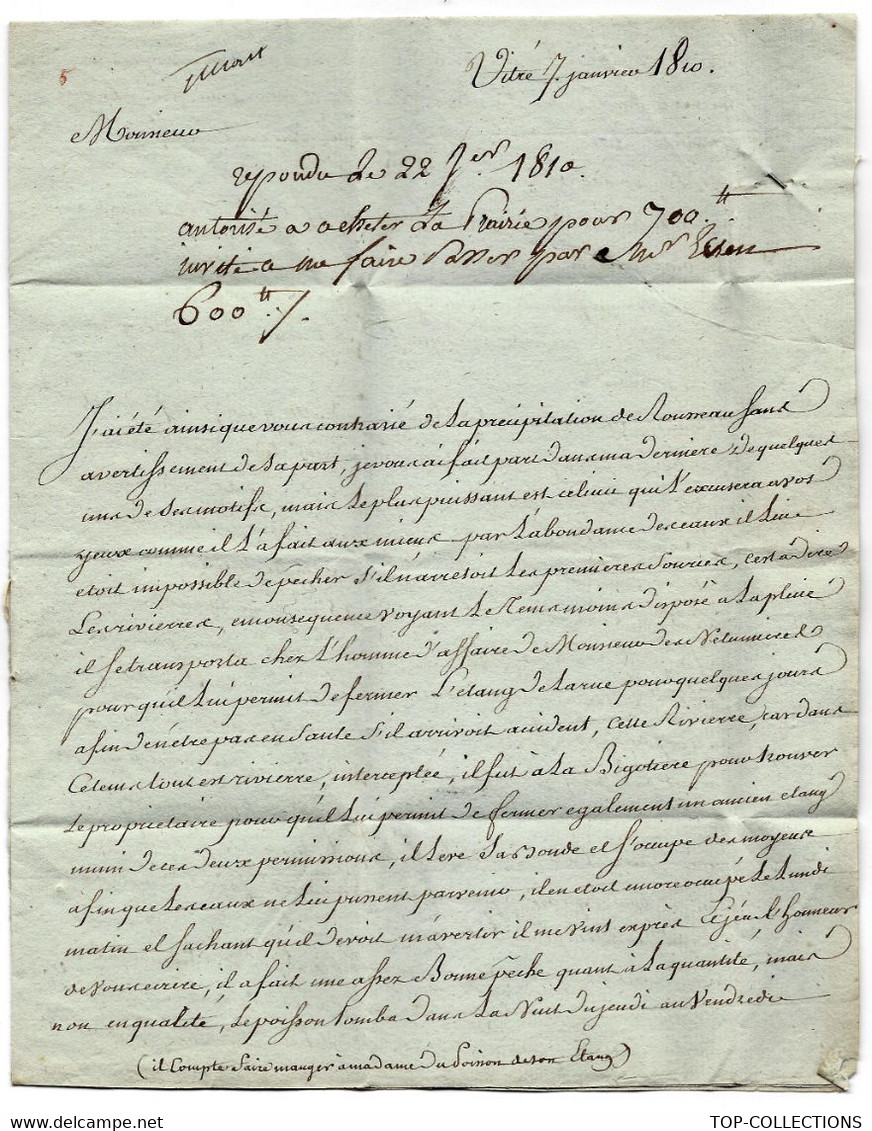 5
Vitré 7. janvier 1810.
Monsieur
repondu le 22 Jer. 1810.
autorisé a acheter La Prairie pour 700.tt
invité a me faire Passer par Mr.
600tt /.
J'ai été ainsi que vous contrarié de la précipitation de Rousseau Sans
avertissement de sa part, je vous ai fait part dans ma derniere de quelques
uns de ses motifs, mais le plus puissant est celui ci qui l'excusera a vos
yeux comme il l'a fait aux miens par l'abondance des eaux il lui
etoit impossible de pècher s'il n'arretoit les premieres Sources, cest à dire
Les rivierres, en consequence voyant le tems moins disposé à la pluie
il se transporta chez l'homme d'affaire de Monsieur des Nétumieres
pour qu'il lui permit de fermer L'étang de la rue pour quelques jours
afin de n'être pas en faute s'il arrivoit accident, cette Rivierre, car dans
Ce tems tout est rivierre, interceptée, il fut à La Bigotiere pour trouver
le proprietaire pour qu'il lui permit de fermer egalement un ancien etang
muni de ces deux permissions, il leve sa bonde et s'occupe des moyens
afin que les eaux ne lui pussent parvenir, il en etoit encore ocupé le Lundi
matin et sachant qu'il devoit m'avertir il me vint exprès Et j'eu l'honneur
de vous ecrire, il a fait une assez Bonne pèche quant à la quantité, mais
non en qualité, Le poisson tomba dans La Nuit du jeudi au Vendredi
(il Compte faire manger à madame du Poisson de son Etang)
TOP-COLLECTIONS